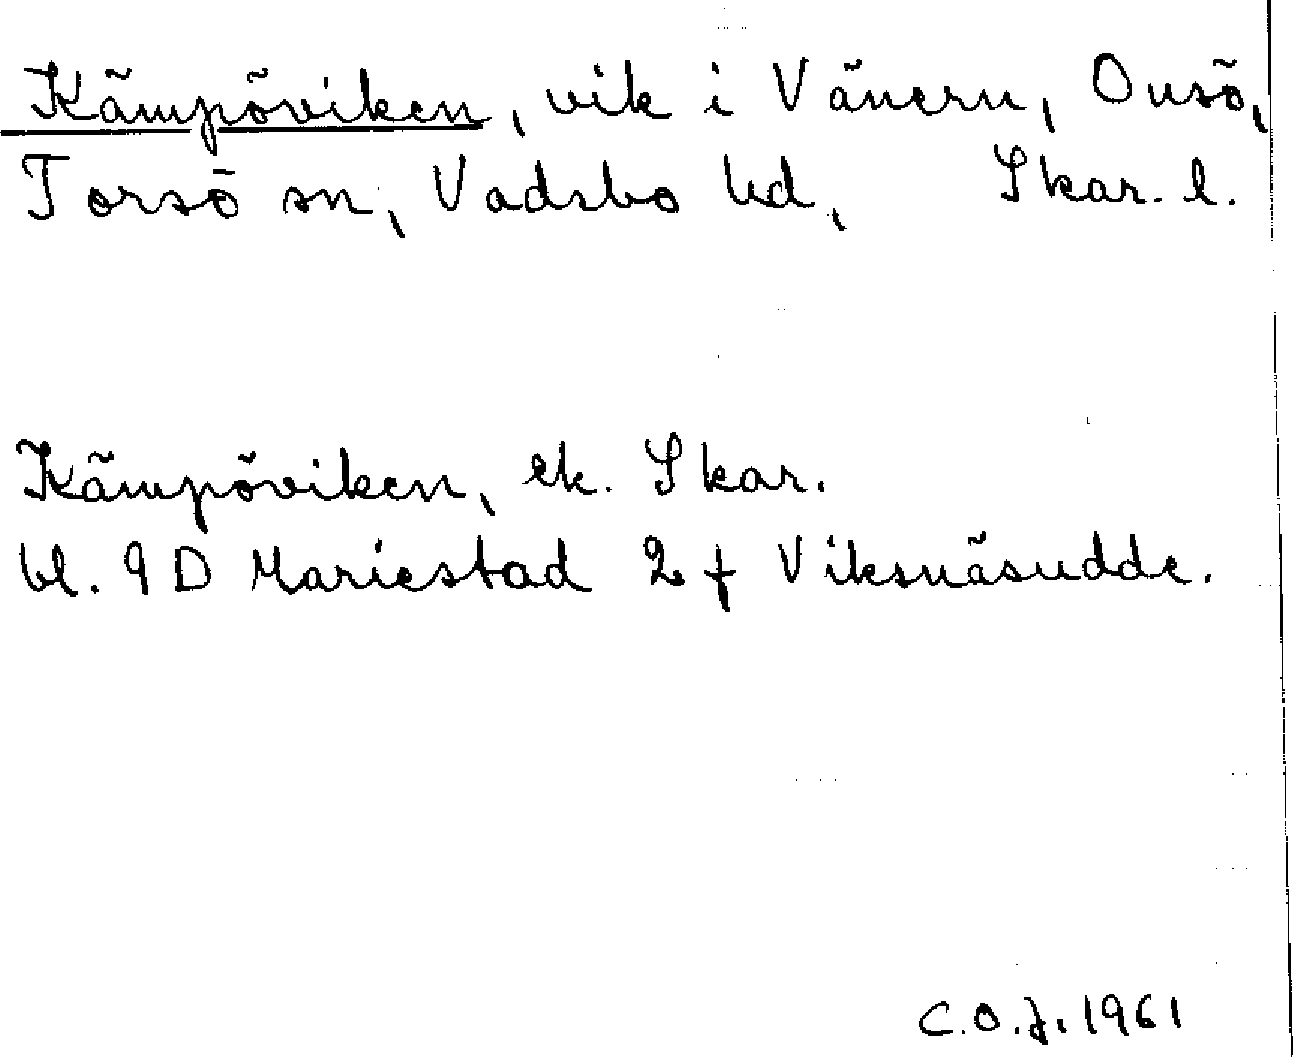 Kämpöviken, vik i Vänern, Onsö,
Torsö sn, Vadsbo hd, Skar. l.
Kämpöviken, ek. Skar.
bl. 9 D Mariestad 2 f Viksnäsudde.
C.O.J. 1961